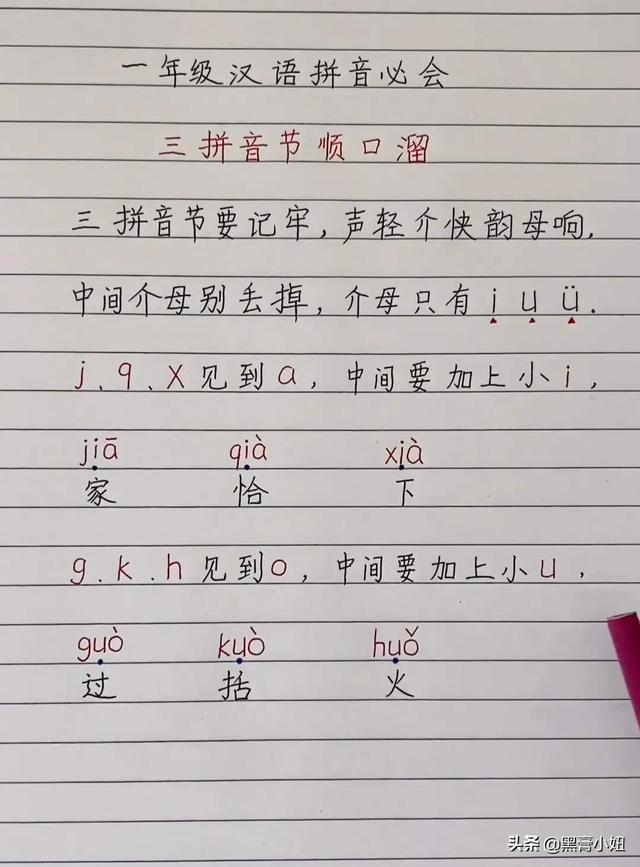 一年级汉语拼音必会
三拼音节顺口溜
三拼音节要记牢,声轻介快韵母响,
中间介母别丢掉,介母只有 i u ü.
j、q、x见到a,中间要加上小i,
jiā qià xià
家 恰 下
g、k、h见到o,中间要加上小u,
guò kuò huǒ
过 括 火
头条 @黑膏小妞